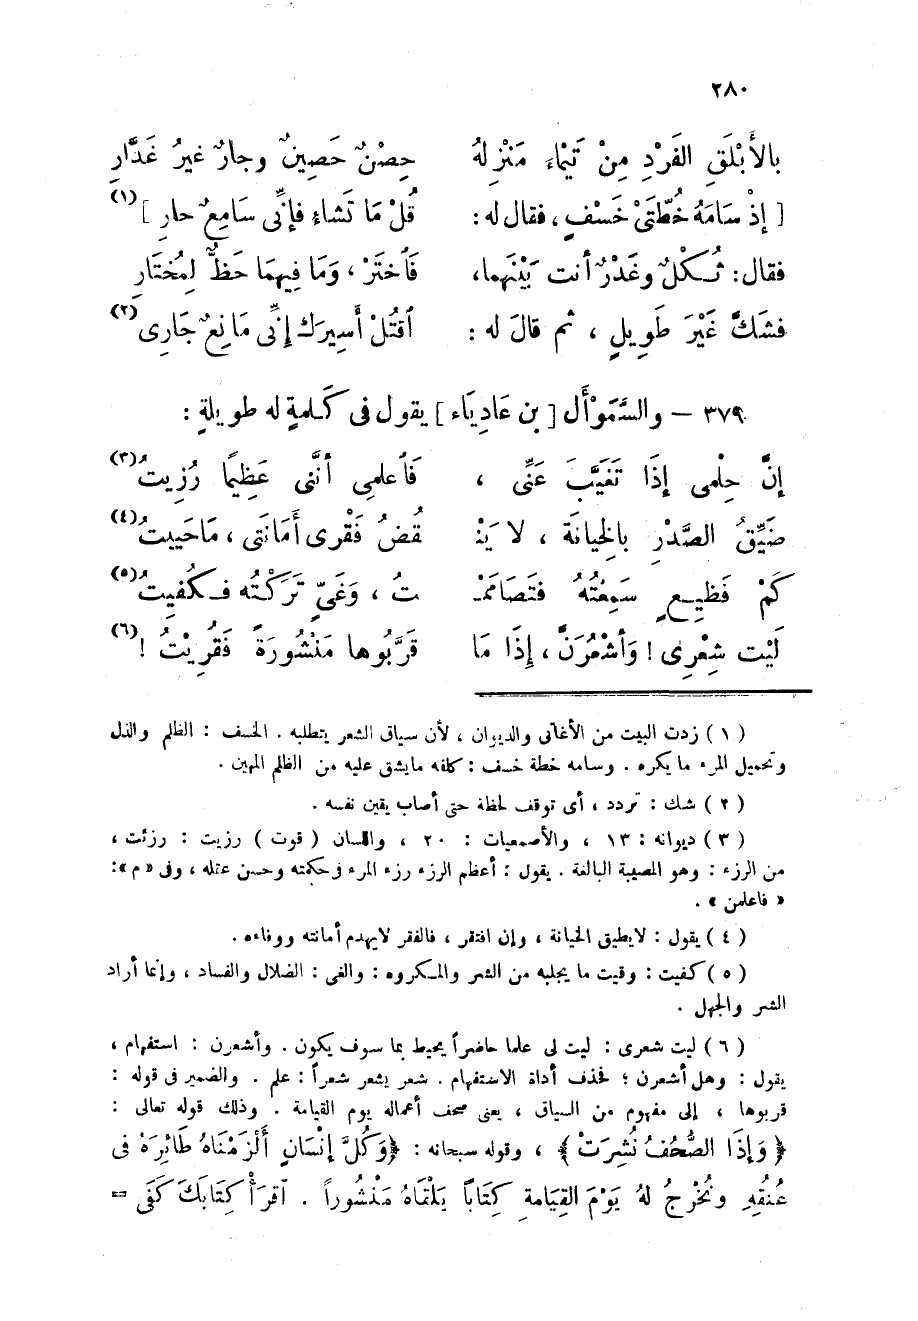 ٢٨٠
بالأَبْلَقِ الفَرْدِ مِنْ تَيْمَاءَ مَنْزِلهُ حِصْنٌ حَصِينٌ وجارٌ غيرُ غَدَّارِ
[ إذْ سَامَهُ خُطَّتَىْ خَسْفٍ ، فقال له : قُلْ مَا تَشاءِ فإنِّى سَامِعٌ حارِ ] (١)
فقال : ثُكْلٌ وغَدْرٌ أنت بَيْنَهما، فَاْختَرْ ، وَمَا فِيهِمَا حَظٌّ لِمُخْتَارِ
فشَكَّ غَيْرَ طَوِيلٍ ، ثم قالَ له : اقتُلْ أَسِيرَك إنِّى مَانِعٌ جَارِى (٢)
٣٧٩ – والسَّمَوْأَل [ بن عَادِيَاء ] يقول فى كَلمةٍ له طويلةٍ :
إنَّ حِلْمى إذَا تَغَيَّبَ عَنِّى ، فَاْعلمِى أنَّنى عَظِيمًا رُزِيتُ (٣)
ضَيِّقُ الصَّدْرِ بالخِيانَة ، لا يَنْـ ـقُضُ فَقْرِى أَمَانَتى ، مَاحَيِيتُ (٤)
كَمْ فَظِيعٍ سَمِعْتُهُ فتَصَامَمْـ ـتُ ، وَغَىٍّ تَرَكْتُه فكُفيتُ (٥)
لَيْت شِعْرِى ! وَأشْعُرَنَّ ، إذَا مَا قَرَّبُوها مَنْشُورَةً فَقُرِيْتُ ! (٦)
( ١ ) زدت البيت من الأغانى والديوان ، لأن سياق الشعر يتطلبه . الخسف : الظلم والذل
وتحميل المرء ما يكره . وسامه خطة خسف : كلفه مايشق عليه من الظلم المهين .
( ٢ ) شك : تردد ، أى توقف لحظة حتى أصاب يقين نفسه .
( ٣ ) ديوانه : ١٣ ، والأصمعيات : ٢٠ ، واللسان ( قوت ) رزيت : رزئت ،
من الرزء : وهو المصيبة البالغة . يقول : أعظم الرزء رزء المرء فى حكمته وحسن عقله ، وفى « م » :
« فاعلمن » .
( ٤ ) يقول : لايطيق الخيانة ، وإن افتقر ، فالفقر لايهدم أمانته ووفاءه .
( ٥ ) كفيت : وقيت ما يجلبه من الشر والمكروه : والغى : الضلال والفساد ، وإنما أراد
الشر والجهل .
( ٦ ) ليت شعرى : ليت لى علما حاضراً يحيط بما سوف يكون . وأشعرن : استفهام ،
يقول : وهل أشعرن ؛ فحذف أداة الاستفهام . شعر يشعر شعراً : علم . والضمير فى قوله :
قربوها ، إلى مفهوم من السياق ، يعنى صحف أعماله يوم القيامة . وذلك قوله تعالى :
﴿ وَإذَا الصُّحُفُ نُشِرَتْ ﴾ ، وقوله سبحانه : ﴿وَكُلَّ إنْسَانٍ أَلْزَمْنَاهُ طَائِرَهُ فى
عُنُقِهِ ونُخْرِجُ لهُ يَوْمَ القِيَامةِ كِتَابًا يَلْقَاهُ مَنْشُوراً . اقرَأْ كِتَابَكَ كَفَى =